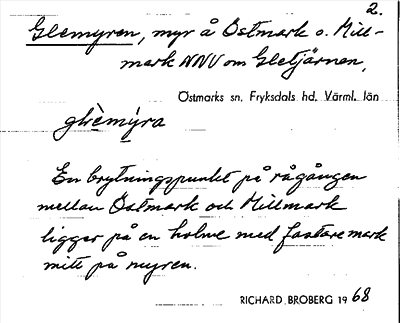 2.
Glemyren, myr å Östmark o. Mill-
mark NNV om Gletjärnen,
Östmarks sn, Fryksdals hd. Värml. län
glrèmýra
En brytningspunkt på rågången
mellan Östmark och Millmark
ligger på en holme med fastare mark
mitt på myren.
RICHARD BROBERG 1968